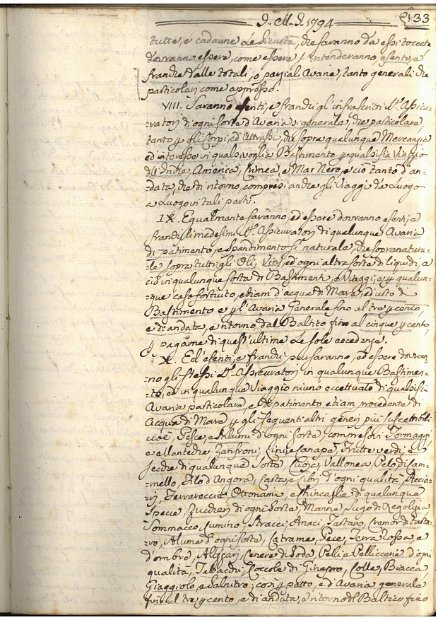 A. M. D. 1794. 33
tutte, e cadaune le Sicurtà, che saranno da essi toccate
dovranno essere, come essere s'intenderanno esenti, e
franche dalle totali, o parziali Avarie, tanto generali, che
particolari come appresso.
VIII. Saranno esenti, e franchi gl'infrascritti SS.ri Assicu
ratori d'ogni sorte d'Avaria generale, che particolare
tanto p. gli Corpi, ed Attrassi, che sopra qualunque Mercanzia
ed interesse in qualsivoglia Bastimento p. qualsisia Viaggio
di Indie, America, Guinea, e Mar Nero, e ciò tanto d'an
data, che di ritorno, compresi anche gli Viaggi da Luogo
a Luogo in tali parti.
IX. Egualmente saranno ed essere dovranno esenti, e
franchi li medesimi SS.ri Assicuratori di qualunque Avaria
di patimento, e spandimento sì naturale, che sopranatura
le sopra tutti gli Olj, Vini, ed ogni altra sorta di liquidi, e
ciò in qualunque sorta di Bastimenti, e Viaggi, e p. qualun
que caso fortuito, etiam d'acqua di Mare, ed uscito di
Bastimento e p. l'Avaria Generale sino il tre p. cento,
e di andata, e ritorno dal Baltico fino al cinque p. cento
p. pagarne di quest'ultime le sole eccedenze.
X. Ed esenti, e franchi più saranno, ed essere dovran
no gli stessi SS.ri Assicuratori in qualunque Bastimen
to, ed in qualunque Viaggio niuno eccettuato di qualsisia
Avaria particolare, e di patimento etiam procedente da
Acqua di Mare p. gli seguenti altri generi più suscettibili
cioè Pesce, e Salumi d'ogni sorta, Formaggi
e Canapa, Frutte verdi, e
secche di qualunque sorta, Cuoj, Vallonea, Pelo di Cam
mello, Filo d'Angora, d'ogni qualità,
Ottomani, e chincaglie di qualunque
specie, Zuccheri di ogni sorta, Manna, Sugo di Regolizia
Sommacco, Cumino, Anaci, Tartaro, Cremor di Tarta
ro, Allume d'ogni sorta, Catrame, Pece, Terra rossa, e
d'ombra, Cenere di Soda, Peli, e Pelliccerie d'ogni
qualità, Tabacchi, Coccole di Ginepro, Colle, Biacca
Giaggiolo, e Salnitro, e d'Avaria generale
fino il tre p. cento, e di andata, e ritorno dal Baltico fino